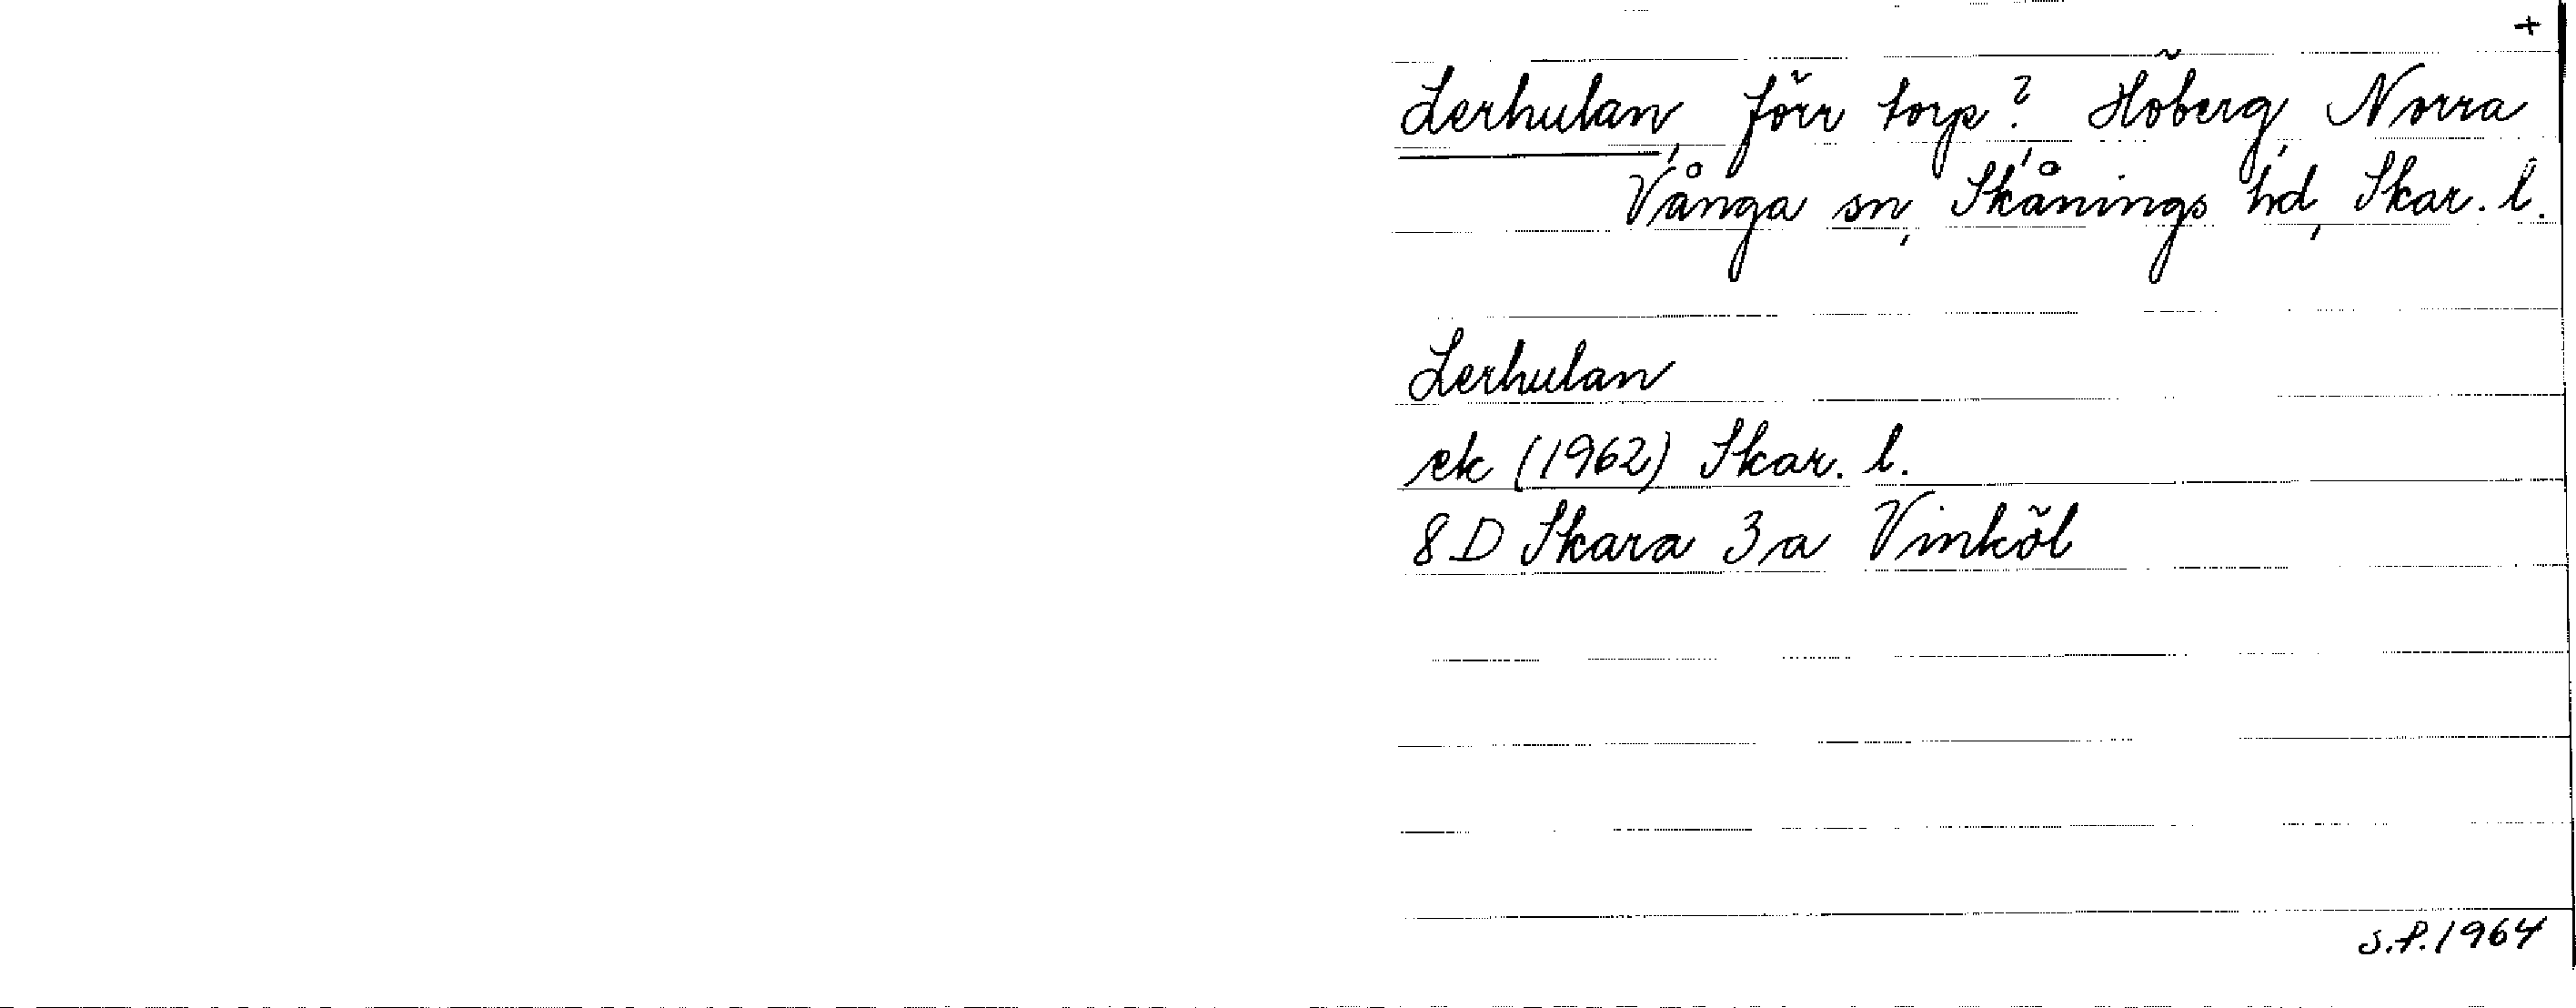 +
Lerhulan, förr torp?, Höberg, Norra
Vånga sn, Skånings hd, Skar. l.
Lerhulan
ek (1962) Skar. l.
8 D Skara 3 a Vinköl
S.P. 1964